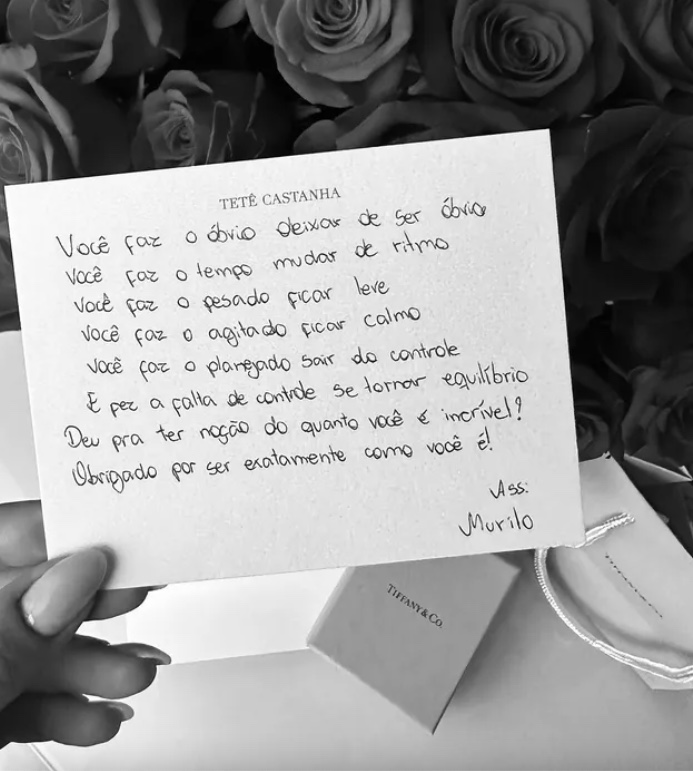 TETÊ CASTANHA
Você faz o óbvio deixar de ser óbvio
Você faz o tempo mudar de ritmo
Você faz o pesado ficar leve
Você faz o agitado ficar calmo
Você faz o planejado sair do controle
E fez a falta de controle se tornar equilíbrio
Deu pra ter noção do quanto você é incrível?
Obrigado por ser exatamente como você é!
Ass:
Murilo
TIFFANY & CO.